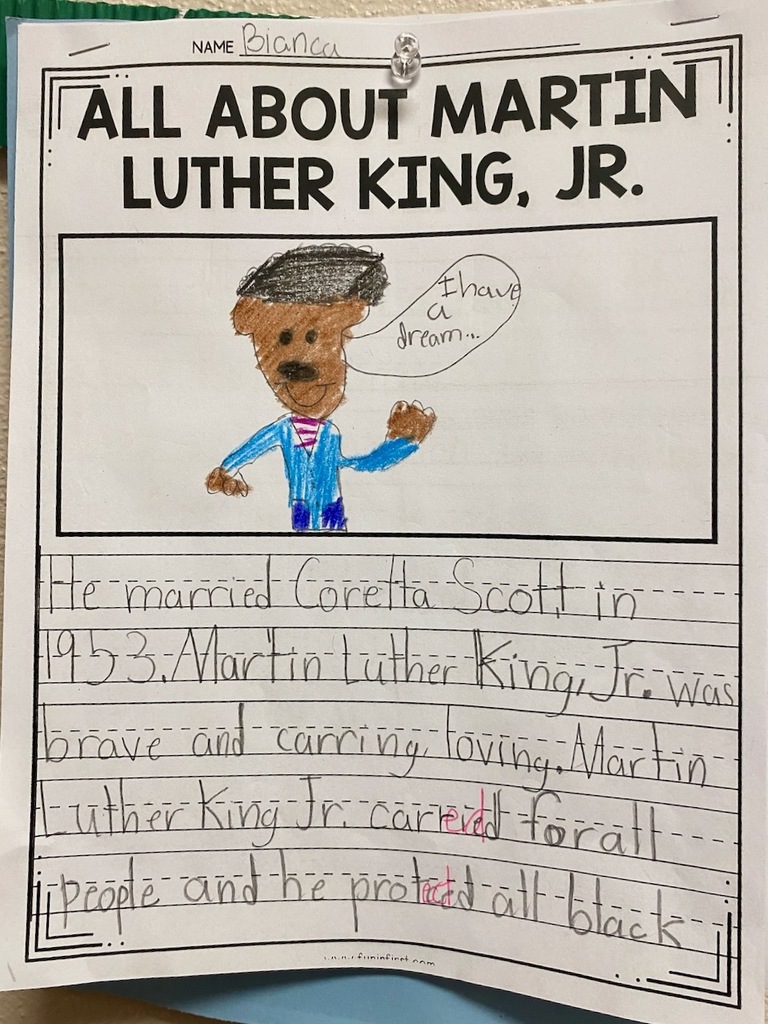 NAME Bianca
ALL ABOUT MARTIN
LUTHER KING, JR.
I have
a
dream...
He married Coretta Scott in
1953. Martin Luther King, Jr. was
brave and carring, loving. Martin
Luther King Jr. carrered for all
people and he protectd all black
www.funinfirst.com